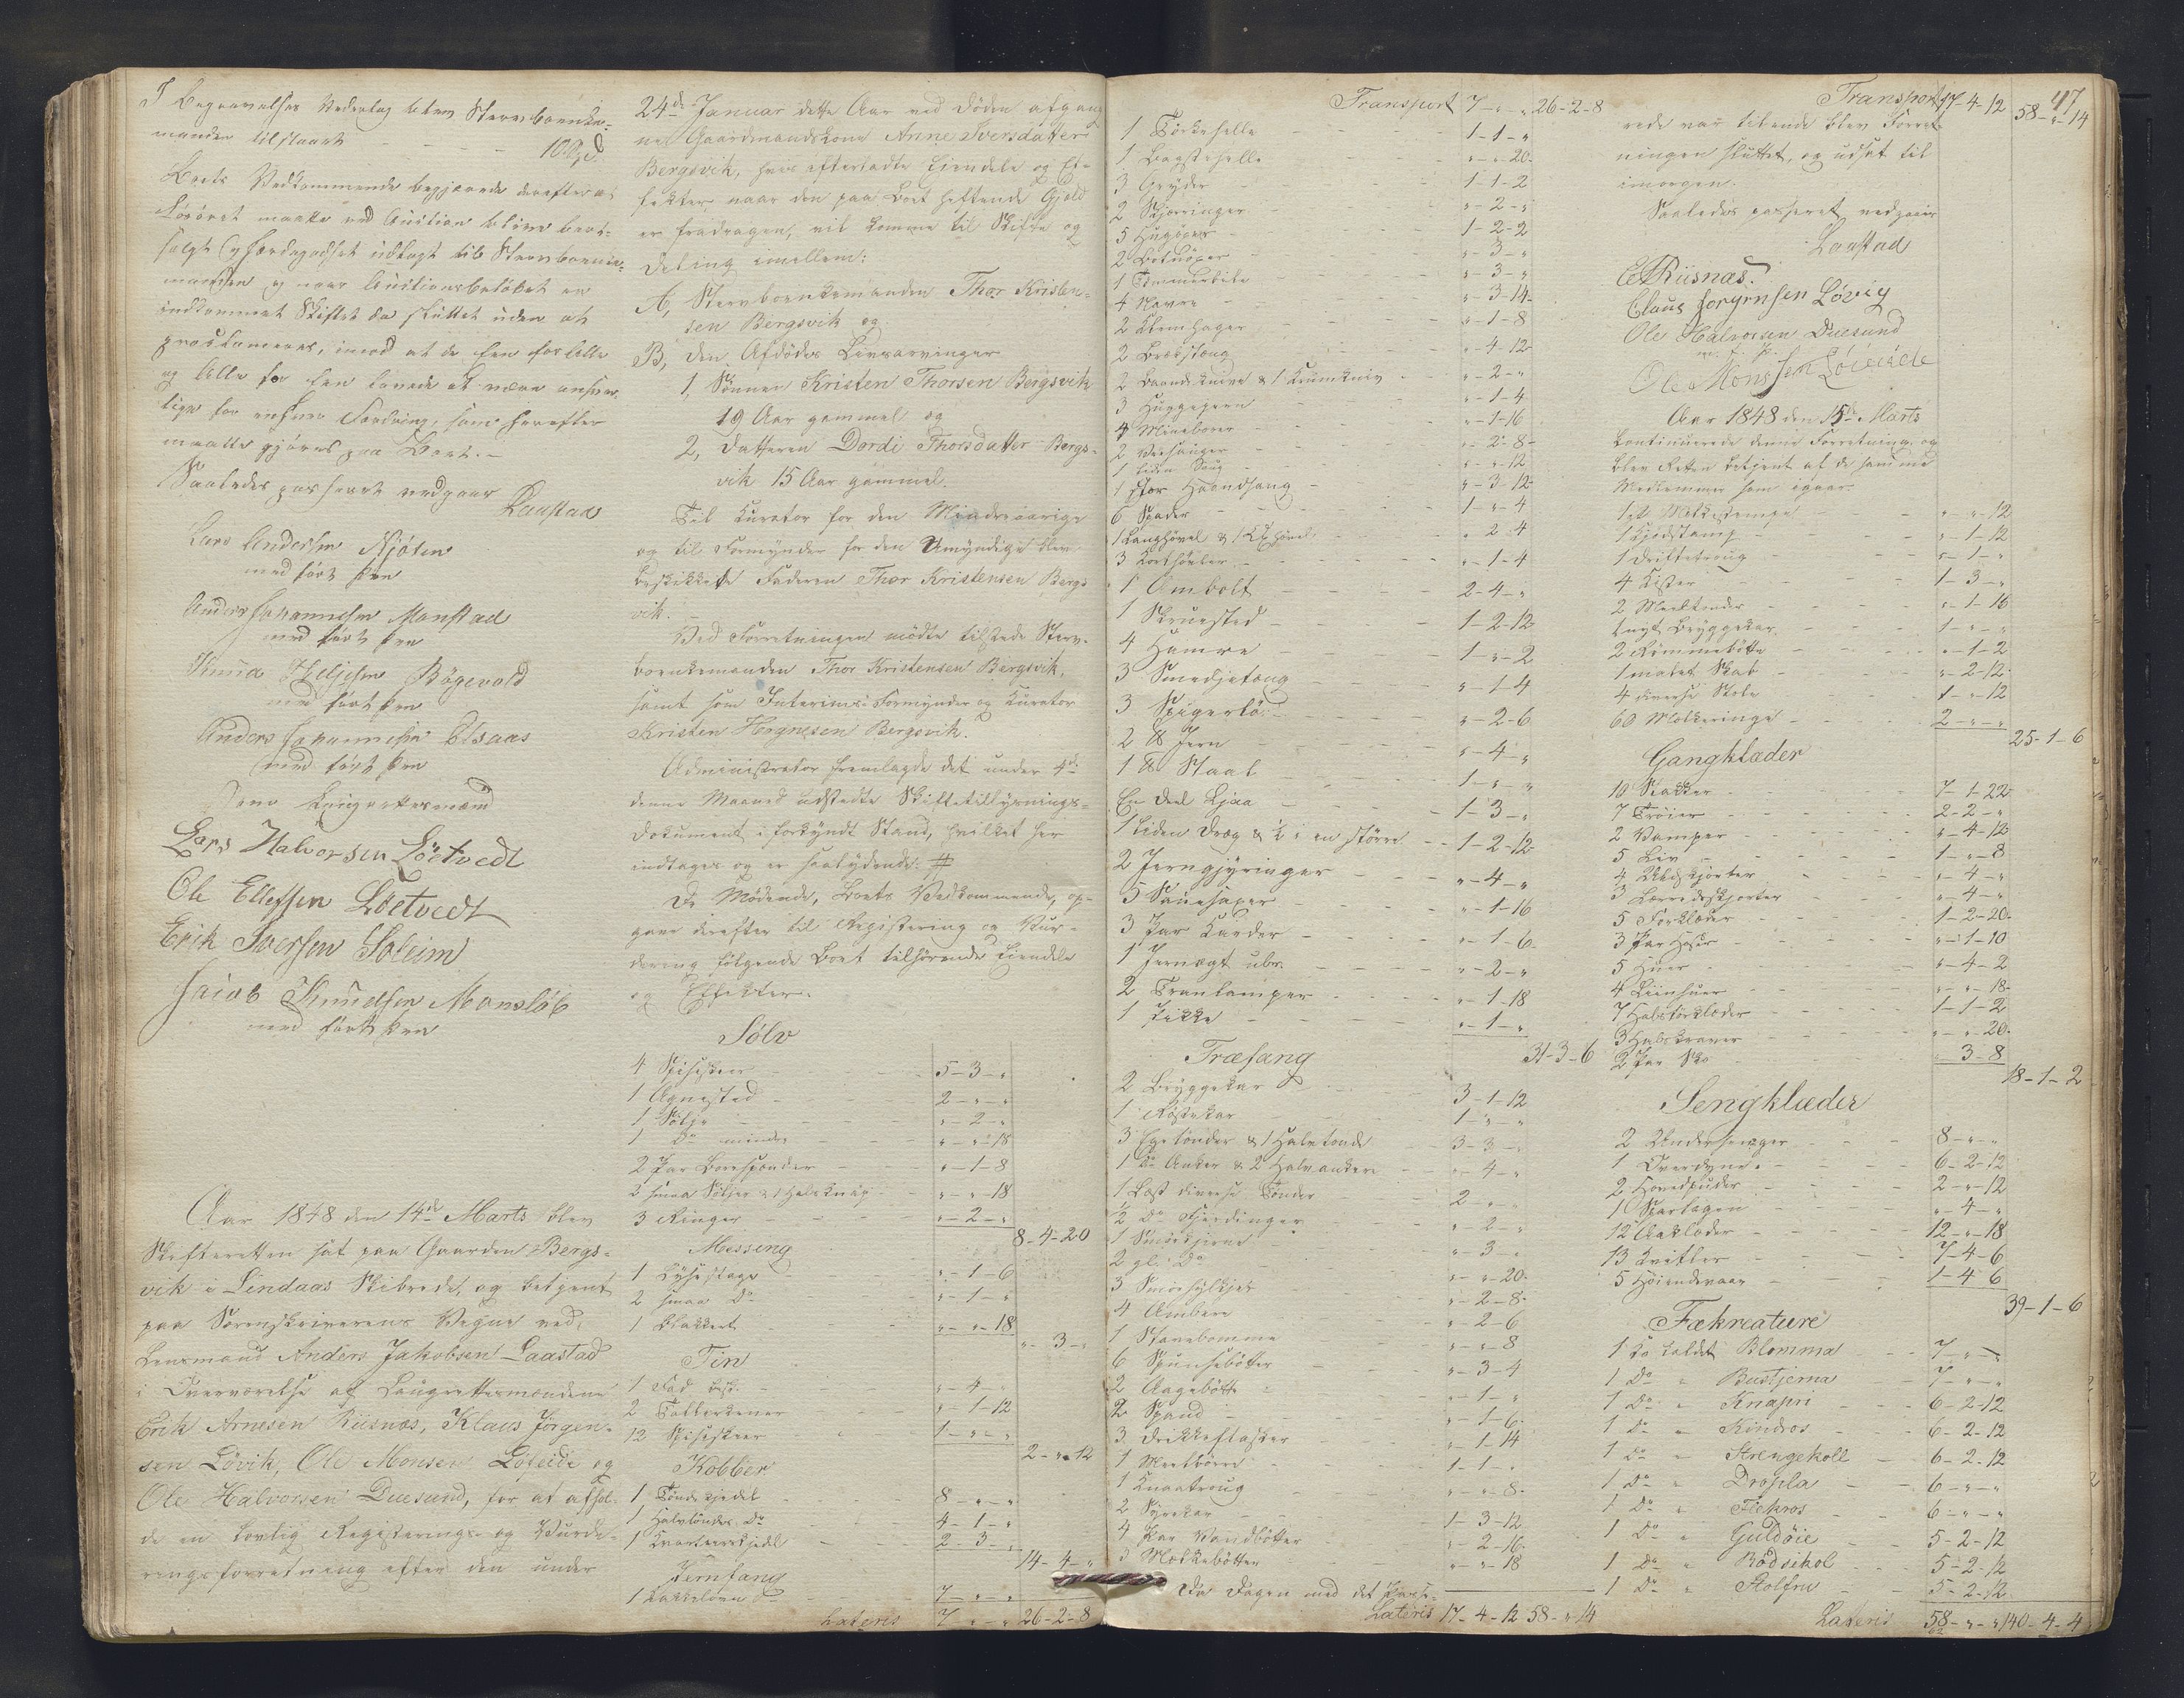 I Begravelses Vederlag blev Stervboenke-
manden tilstaaet - - - 10 Spd.
Boets Vedkommende begjærede derefter at
Løsøret maatte ved Auction blive bort-
solgt og Jordegodset udlagt til Stervboenke-
manden og naar Auctionsbeløbet er
indkommet Skiftet da sluttet uden at
proklameres, imod at de Een for Alle
og Alle for Een lovede at være ansvar-
lige for enhver Fordring, som herefter
maatte gjøres paa Boet. -
Saaledes passeret vedgaaer
Laastad
Lars Andersen Njøten
med ført Pen
Anders Johannesen Monstad
med ført Pen
med ført Pen
Anders Johannesen
med ført Pen
som Laugrettesmænd
Lars Halvorsen Löetvedt
Ole Ellefsen Löetvedt
Erik Iversen Soleim
Jacob Knudsen Monsløb
med ført Pen
Aar 1848 den 14de Marts blev
Skifteretten sat paa Gaarden Bergs-
vik i Lindaas Skibrede, og betjent
paa Sorenskriverens Vegne ved
Lensmand Anders Jakobsen Laastad
i Overværelse af Laugrettesmændene
Erik Arnesen Riisnæs, Klaus Jørgen-
sen Løvik, Ole Monsen Løfeide og
Ole Halvorsen Duesund, for at afhol-
de en lovlig Registerings- og Vurde-
ringsforretning efter den under
24de Januar dette Aar ved Døden afgang-
ne Gaardmandskone Anne Iversdatter
Bergsvik, hvis efterladte Eiendele og Ef-
fekter, naar den paa Boet heftende Gjeld
er fradragen, vil komme til Skifte og
Deling imellem:
A, Stervboenkemanden Thor Kristen-
sen Bergsvik og
B, den Afdødes Livsarvinger
1, Sønnen Kristen Thorsen Bergsvik
19 Aar gammel og
2, Datteren Dordi Thorsdatter Bergs-
vik 15 Aar gammel.
Til Kurator for den Mindreaarige
og til Formynder for den Umyndige blev
beskikket Faderen Thor Kristensen Bergs-
vik. -
Ved Forretningen mødte tilstede Sterv-
boenkemanden Thor Kristensen Bergsvik,
samt som Interims-Formynder og Kurator
Kristen Hognesen Bergsvik.
Administrator fremlagde det under 4de
denne Maaned udstedte Skiftetillysnings-
Dokument i forkyndt Stand, hvilket her
indtages og er saalydende: #
De Mødende, Boets Vedkommende, op-
gave derefter til Registering og Vur-
dering følgende Boet tilhørende Eiendele
og Effekter.
Sølv
4 Spiseskeer - - - 5-3-„
1 Agnested - - - 2-„-„
1 Sølje - - - „-2-„
1 do mindre - - - „-„-18
2 Par Borespænder - - - „-1-8
2 smaa Søljer & 1 Halsknap - „-„-18
3 Ringer - - - „-2-„
8-4-20
Messing
1 Lysestage - - - „-1-6
2 smaa do - - - „-1-„
1 Blakkert - - - „-„-18
„-3-„
Tin
1 Fad - - - „-4-„
2 Tallerkener - - - „-1-12
12 Spiseskeer - - - 1-„-„
2-„-12
Kobber
1 Tøndekjedel - - - 8-„-„
1 Halvtøndes do - - - 4-1-„
1 Kvarteerskjedel - - - 2-3-„
14-4-„
Jernfang
1 Kakkelovn - - - 7-„-„
Lateris 7-„-„ 26-2-8
47
Transport 7-„-„ 26-2-8
1 Tørkehelle - - - 1-1-„
1 Bagstehelle - - - „-„-20
3 Gryder - - - 1-1-2
2 Skjæringer - - - „-2-„
5 Hugøxer - - - 1-2-2
2 Botnøxer - - - „-3-„
1 Tømmerbile - - - „-3-„
4 Navre - - - „-3-14
2 Klemhager - - - „-1-8
2 Brædstang - - - „-4-12
2 Baandknive & 1 Krumkniv - „-2-„
3 Huggejern - - - „-1-4
4 Mineborer - - - „-1-16
2 - - - „-2-8
1 liden Saug - - - „-„-12
1 stor Haandsaug - - - „-3-12
6 Spader - - - 1-„-4
1 Langhøvel & 1 høvel - „-2-4
3 Korthøvler - - - „-1-4
1 Ambolt - - - 2-4-„
1 Skruested - - - 1-2-12
4 Hamre - - - 1-„-2
3 Smedjetang - - - „-1-4
3 Spigerlø - - - „-2-6
2 ℔ Jern - - - „-4-„
1 ℔ Staal - - - 1-„-„
En Deel Ljaa - - - 1-3-„
1 liden Dræg & ½ i en større - 1-2-12
2 Jerngjyringer - - - „-4-„
5 Sauesaxer - - - „-1-16
3 Par Karder - - - „-1-6
1 Jernvægt - - - „-2-„
2 Tranlamper - - - „-1-18
1 Pikke - - - „-1-„
31-3-6
Træfang
2 Bryggekar - - - 3-1-12
1 Røstekar - - - 1-„-„
3 Egetønder & 1 Halvtønde - 3-3-„
1 do Anker & 2 Halvankere - „-4-„
1 Læst diverse Tønder - - 2-„-„
½ do Fjerdinger - - - „-2-„
1 Smørkjerne - - - „-3-„
2 gl. do - - - „-„-20
3 - - - „-2-8
4 Ambere - - - „-2-6
1 Stavebomme - - - „-„-8
6 Spunsebøtter - - - „-3-4
2 Aagebøtte - - - „-1-„
2 Spand - - - „-1-6
3 Drikkeflasker - - - „-1-14
1 - - - 1-1-„
1 Knaatroug - - - „-„-8
2 Syrekar - - - 1-3-12
4 Par Vandbøtter - - - „-2-16
3 Melkebøtter - - - „-„-18
Da Dagen med det Passe-
Lateris 17-4-12 58-„-14
Transport 17-4-12 58-„-14
rede var tilende blev Forret-
ningen sluttet, og udsat til
imorgen.
Saaledes passeret vedgaaer
Laastad
E A Riisnæs.
Claus Jorgensen Lövig
Ole Halvorsen Duesund
m. f. P.
Ole Monsen Löieide
Aar 1848 den 15de Marts
kontinuerede denne Forretning og
blev Retten betjent af de samme
Medlemmer som igaar.
- - - „-„-12
1 Kjødstamp - - - „-1-12
1 Drikketroug - - - „-1-„
4 Kister - - - 1-3-„
2 Meeltønder - - - „-1-16
1 nyt Bryggekar - - - 1-„-„
2 Rømmebøtte - - - „-1-2
1 malet Skab - - - „-2-12
4 diverse Stole - - - 1-„-12
60 Melkeringe - - - 2-„-„
25-1-6
Gangklæder
10 Stakker - - - 7-1-22
7 Trøier - - - 2-2-„
2 Vamper - - - „-4-12
5 Liv - - - 1-„-8
4 Uldskjorter - - - „-4-„
3 Lærredsskjorter - - - „-4-„
5 Forklæder - - - 1-2-20
3 Par Hoser - - - „-1-10
5 Huer - - - „-4-2
4 Liinhuer - - - „-„-18
7 Halstørklæder - - - 1-1-2
3 Halskraver - - - „-„-20
2 Par Sko - - - „-3-8
18-1-2
Sengklæder
2 Undersenger - - - 8-„-„
1 Overdyne - - - 6-2-12
2 Hovedpuder - - - 2-„-12
1 Sparlagen - - - „-4-„
12 Aaklæder - - - 12-„-18
13 Kvitler - - - 7-4-6
5 Høiendevaar - - - 1-4-6
39-1-6
Fækreature
1 Ko kaldet Blomma - - 7-„-„
1 do „ Bustjerna - - 7-„-„
1 do „ Knapri - - 6-2-12
1 do „ Rindros - - 6-2-12
1 do „ Strengekoll - 6-2-12
1 do „ Dropla - - 6-„-„
1 do „ Fichros - - 6-„-„
1 do „ Guldøie - - 5-2-12
1 do „ Rødsikol - - 5-2-12
1 do „ Stolfru - - 5-2-12
Lateris 58-„-„ 140-4-4
62